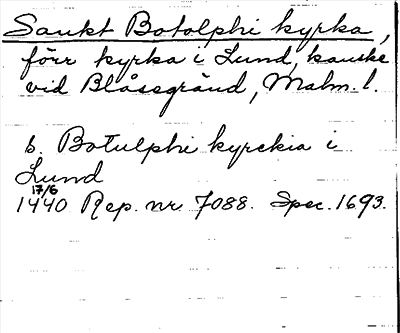 Sankt Botolphi kyrka,
förr kyrka i Lund, kanske
vid Blåsegränd, Malm. l.
s. Botulphi kyrckia i
Lund
17/6
1440 Rep. nr 7088. Spec. 1693.